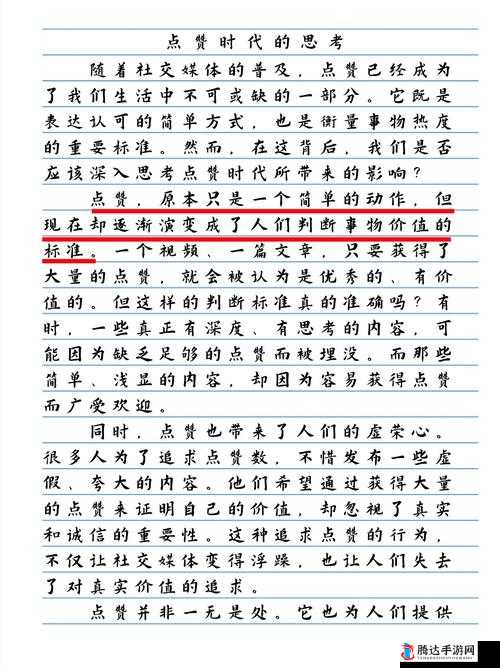 点赞时代的思考
随着社交媒体的普及，点赞已经成为
了我们生活中不可或缺的一部分。它既是
表达认可的简单方式，也是衡量事物热度
的重要标准。然而，在这背后，我们是否
应该深入思考点赞时代所带来的影响？
点赞，原本只是一个简单的动作，但
现在却逐渐演变成了人们判断事物价值的
标准。一个视频、一篇文章，只要获得了
大量的点赞，就会被认为是优秀的、有价
值的。但这样的判断标准真的准确吗？有
时，一些真正有深度、有思考的内容，可
能因为缺乏足够的点赞而被埋没。而那些
简单、浅显的内容，却因为容易获得点赞
而广受欢迎。
同时，点赞也带来了人们的虚荣心。
很多人为了追求点赞数，不惜发布一些虚
假、夸大的内容。他们希望通过获得大量
的点赞来证明自己的价值，却忽视了真实
和诚信的重要性。这种追求点赞的行为，
不仅让社交媒体变得浮躁，也让人们失去
了对真实价值的追求。
点赞并非一无是处。它也为人们提供
腾达手游网